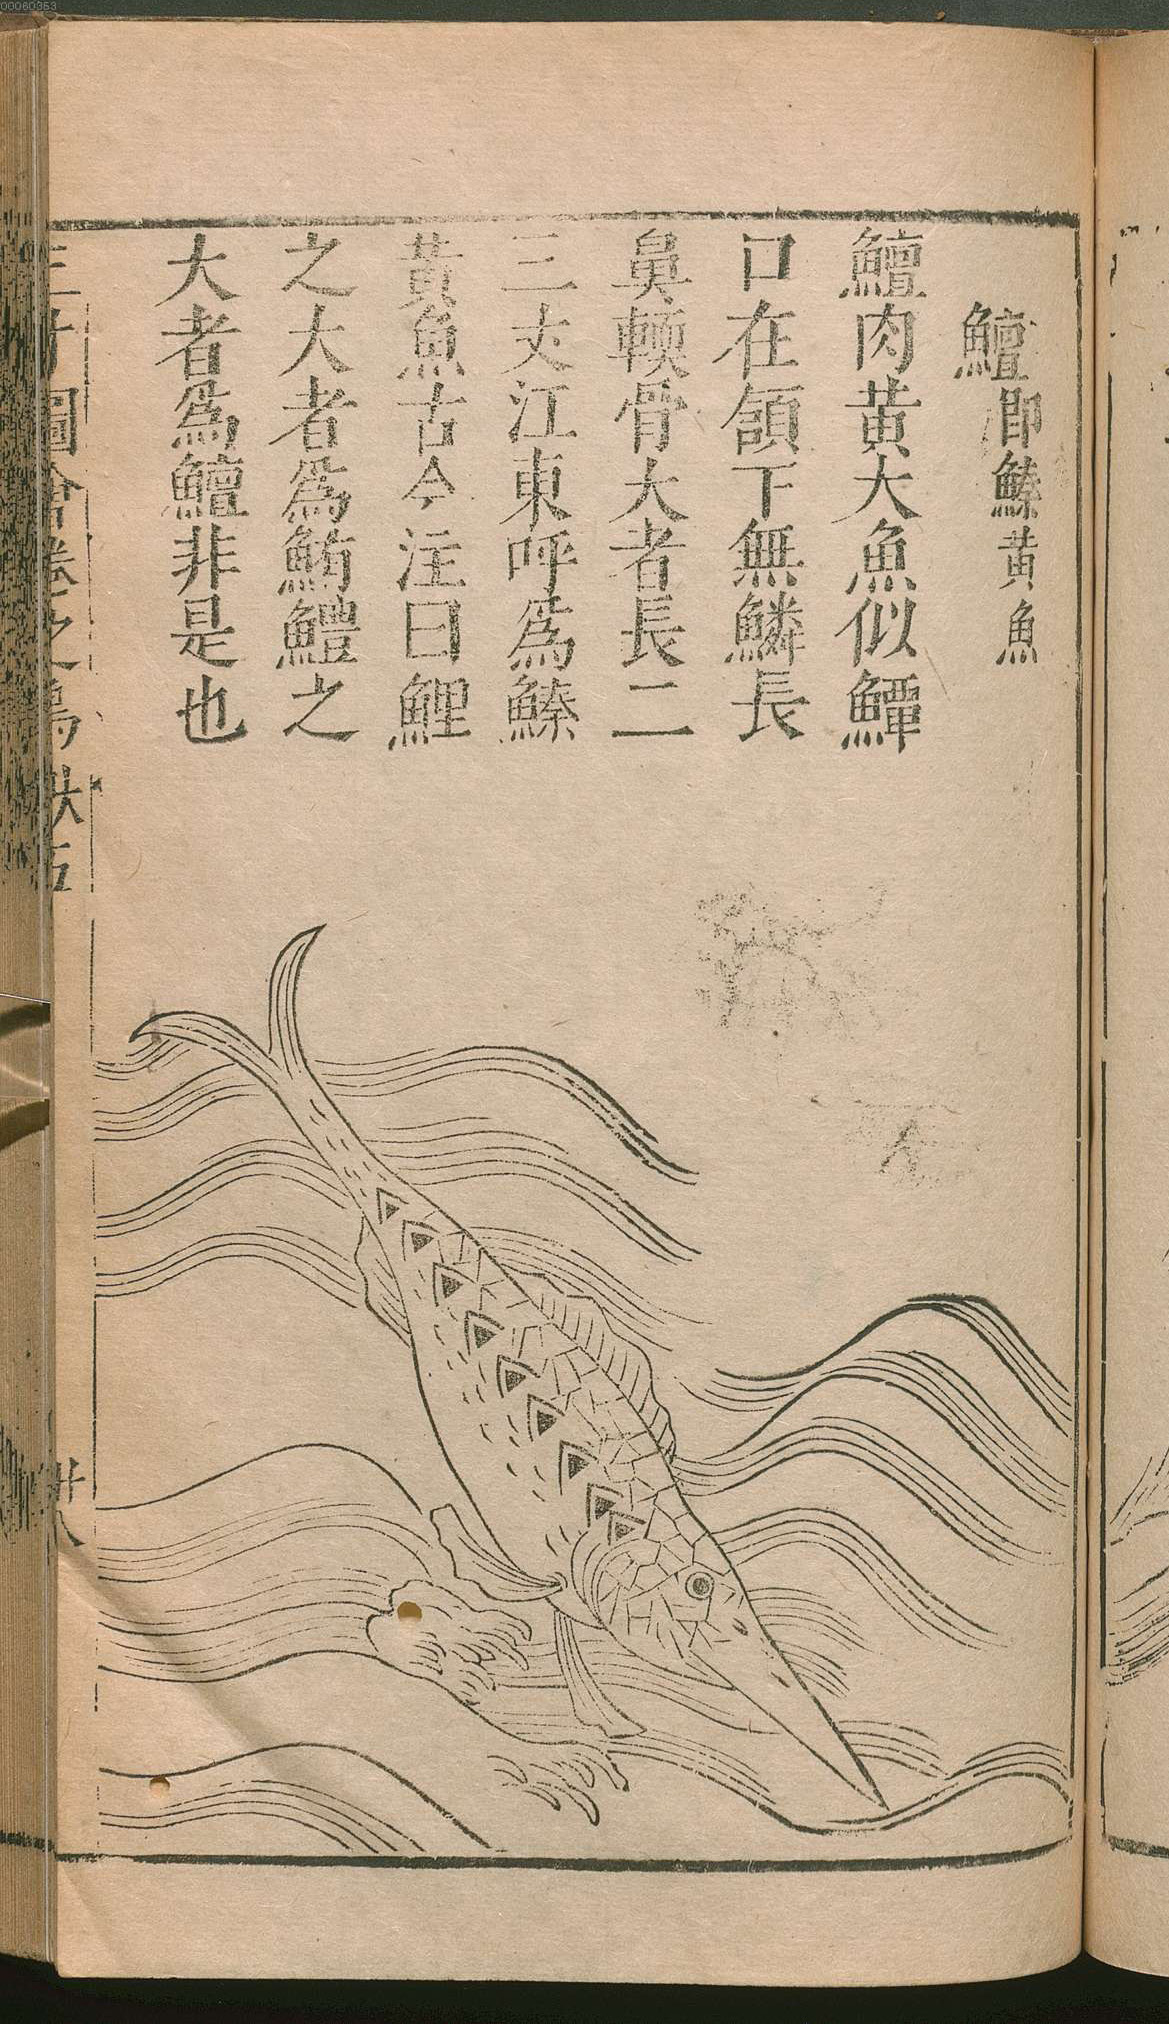 鱣即⿰魚秦黄魚
鱣肉黄大魚似鱏
口在頷下無鱗長
鼻輭骨大者長二
三丈江東呼爲⿰魚秦
黄魚古今注曰鯉
之大者爲鮪鱧之
大者爲鱣非是也
三才圖會卷之鳥獸五
00060353